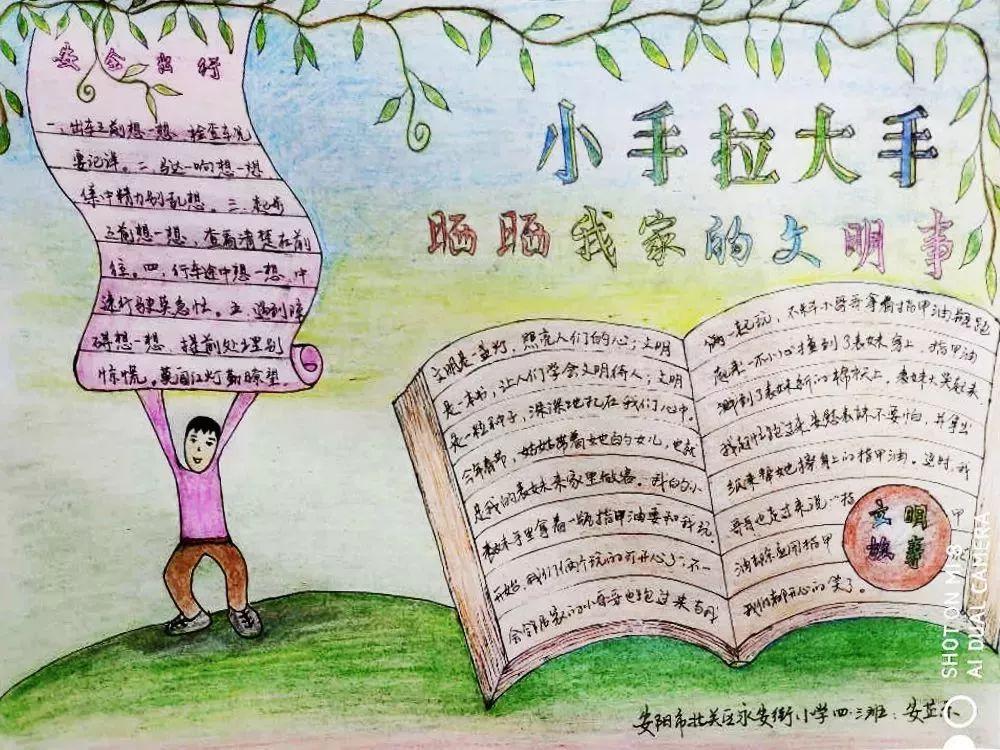 小手拉大手
晒晒我家的文明事
安全出行
一、出车之前想一想，检查车况
要记详。二、马达一响想一想
集中精力别乱想。三、起步
之前想一想，查看清楚在前
往。四、行车途中想一想，中
速行驶莫急忙。五、遇到障
碍想一想，提前处理别
惊慌。莫闯红灯勤瞭望。
文明是一盏灯，照亮人们的心；文明
是一本书，让人们学会文明待人；文明
是一粒种子，深深地扎在我们心中。
今年春节，姑姑带着她的女儿，也就
是我的表妹来家里做客。我的小
表妹手里拿着一瓶指甲油要和我玩
开始，我们俩个玩的可开心了，不一
会邻居家的小哥哥也跑过来与我
俩一起玩，不知小哥哥拿着指甲油瓶跑
起来一不小心撞到了表妹身上，指甲油
洒到了表妹新的棉衣上，表妹大哭起来
我赶忙跑过来安慰表妹不要怕，并拿出
纸来帮她擦身上的指甲油。这时，我
哥哥也走过来说："指甲
油去除应用指甲
我们都开心的笑了。
文明
故事
安阳市北关区永安街小学四·三班：安芷
SHOT ON MI 9
AI DUAL CAMERA